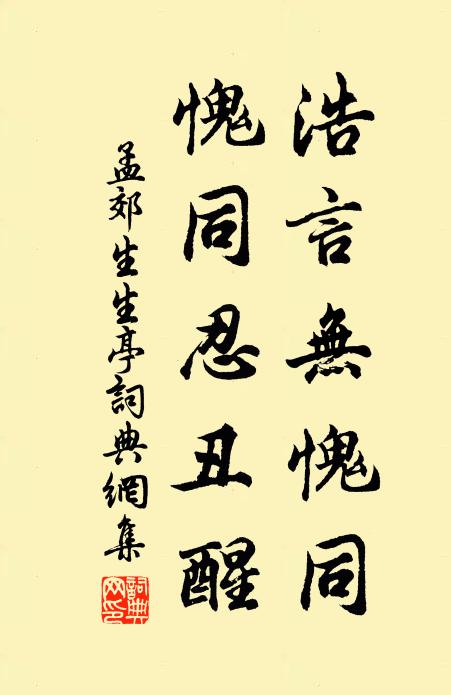 浩言無愧同
愧同忍丑醒
孟郊生生亭詞典網集
詞典網印